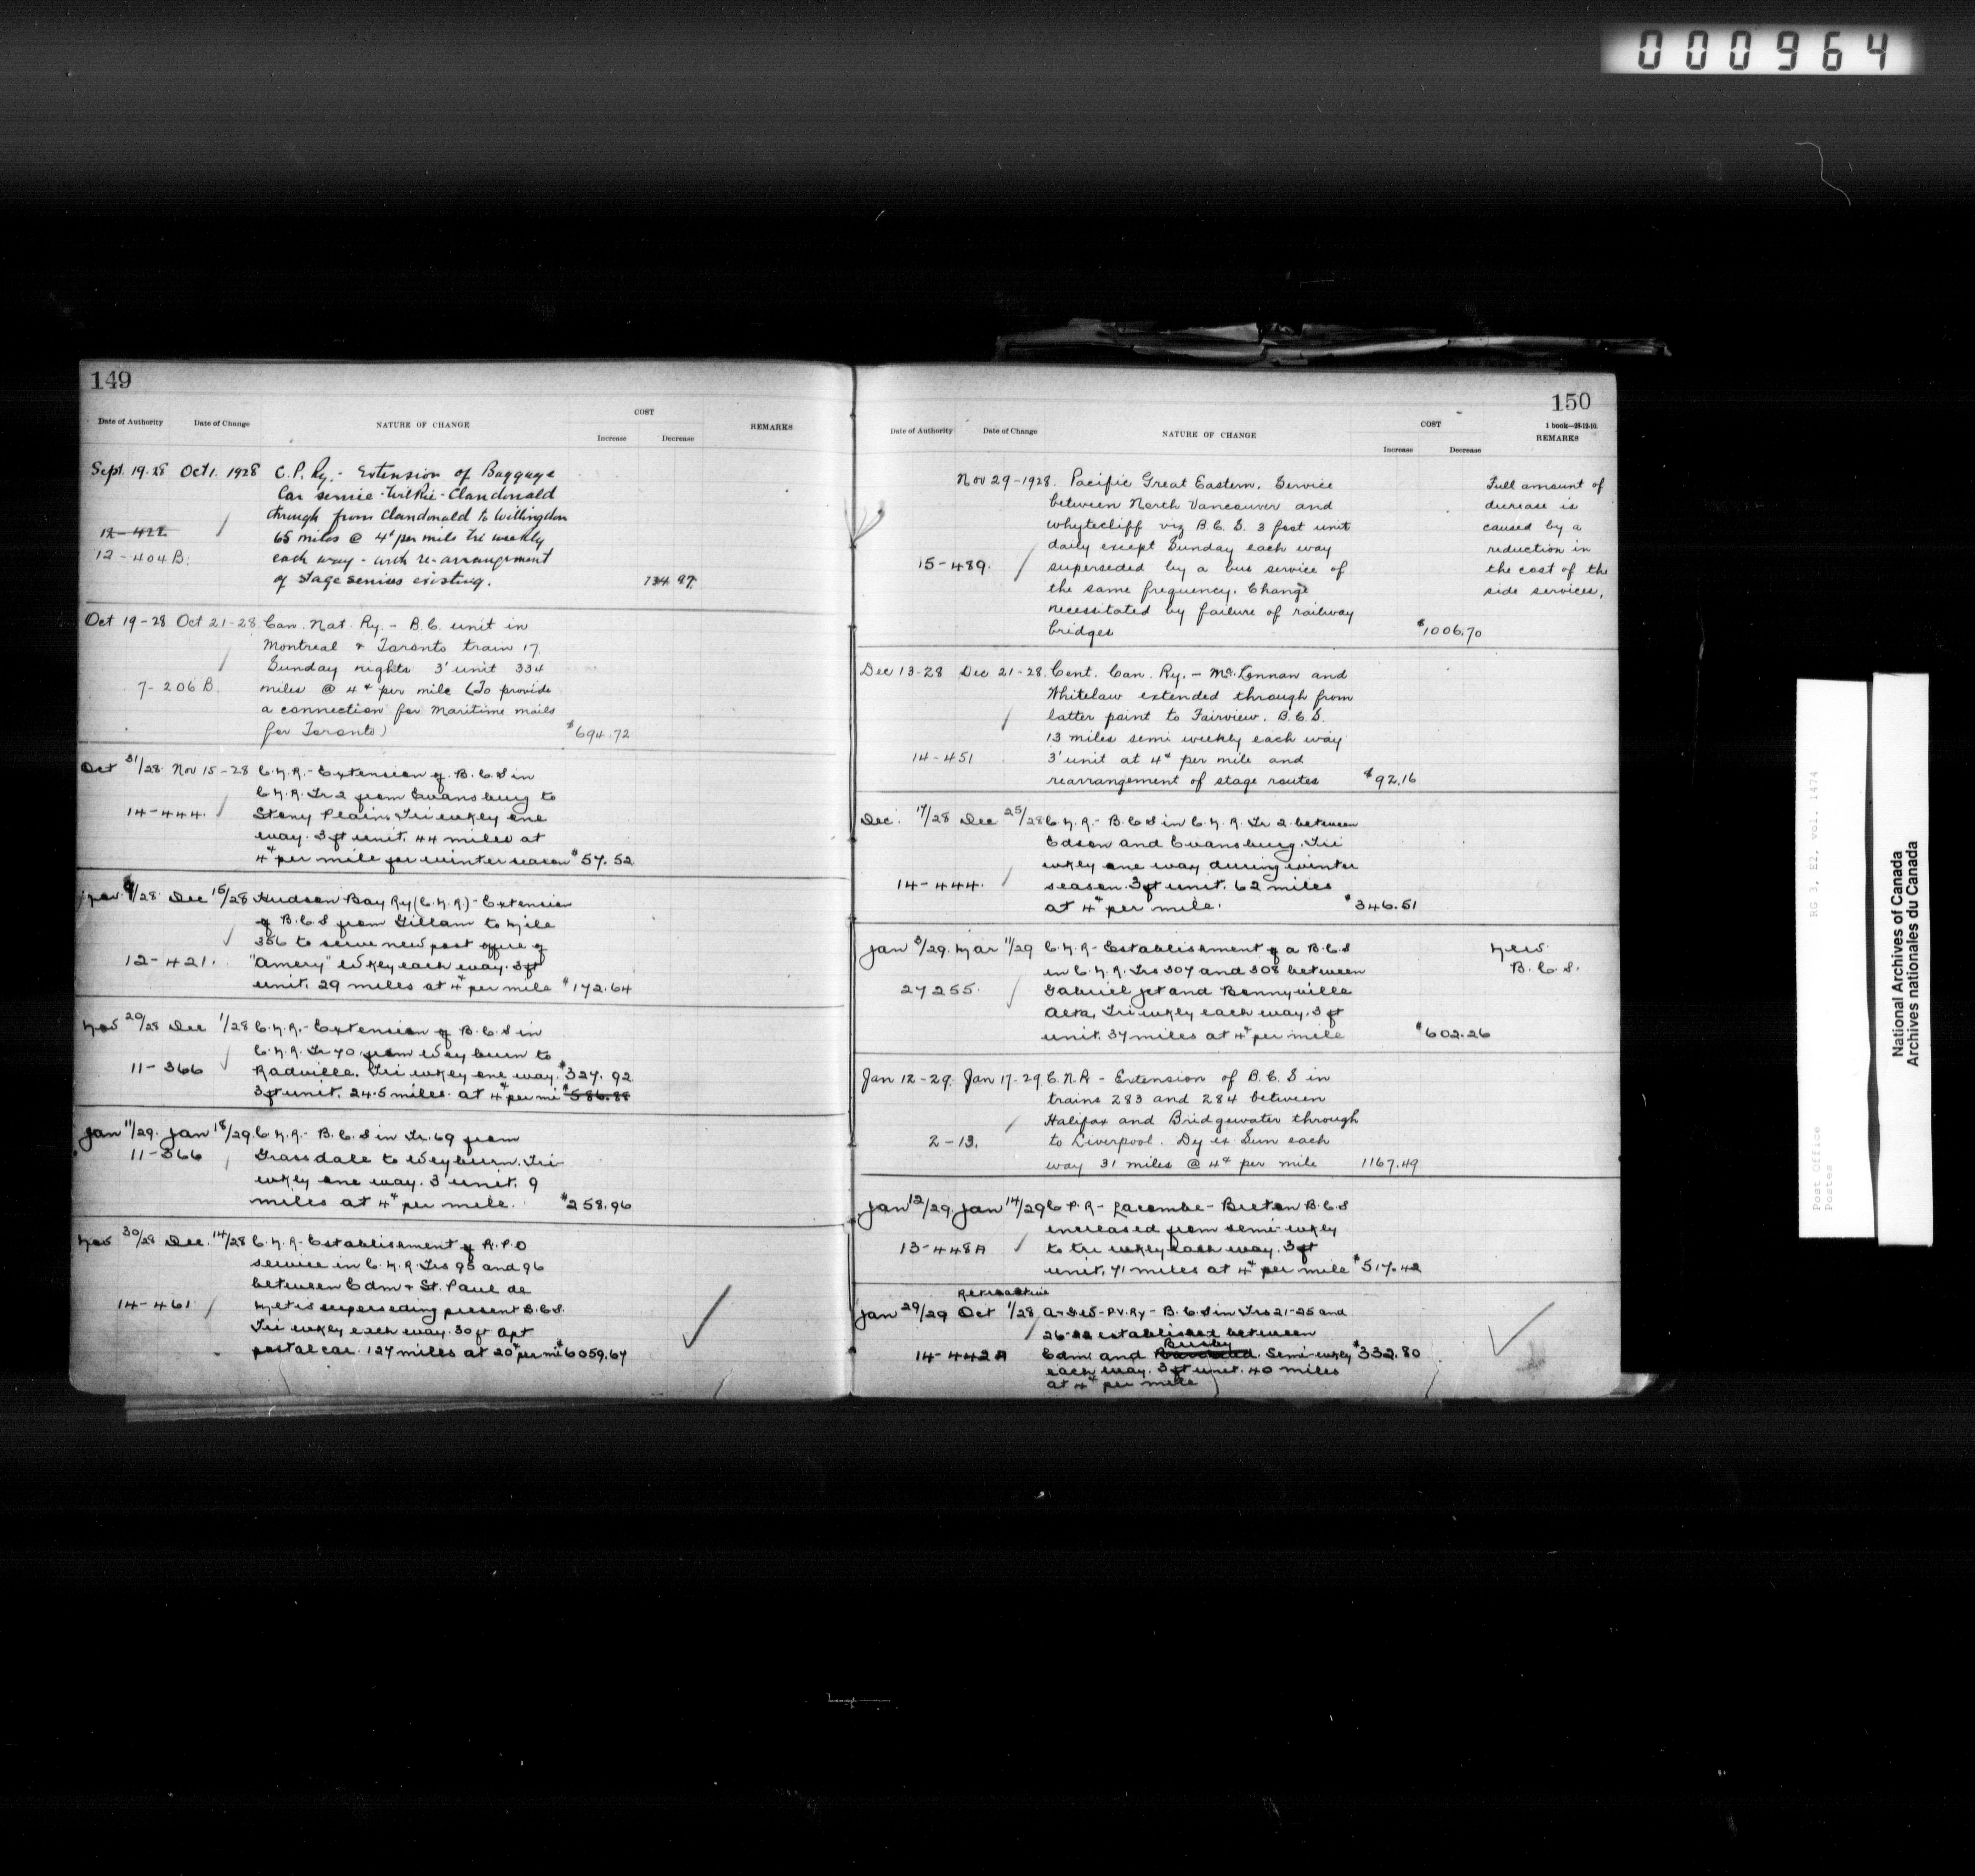 000964
149
Date of Authority Date of Change NATURE OF CHANGE COST REMARKS
Increase Decrease
Sept. 19.28 Oct 1. 1928 C.P. Ry. - Extension of Baggage
Car service - Wilkie - Clandonald
through from Clandonald to Willingdon
12-422 65 miles @ 4¢ per mile tri weekly
12-404B. each way - with re-arrangement
of stage services existing. 734.97
Oct 19-28 Oct 21-28 Can. Nat. Ry. - B.C. unit in
Montreal & Toronto train 17.
Sunday nights 3' unit 334
7-206 B. miles @ 4¢ per mile (To provide
a connection for Maritime mails
for Toronto) $694.72
Oct 31/28. Nov 15-28 C.N.R. - Extension of B.C.S in
C.N.R. Tr 2 from Evansburg to
14-444. Stony Plain. Tri wkly one
way. 3 ft unit. 44 miles at
4¢ per mile for winter season $57.52
Nov. /28 Dec 15/28 Hudson Bay Ry (C.N.R.) - Extension
of B.C.S from Gillam to Mile
356 to serve new post office of
12-421. "Amery" Wkly each way. 3 ft
unit. 29 miles at 4¢ per mile $172.64
Nov 20/28 Dec 1/28 C.N.R. - Extension of B.C.S in
C.N.R. Tr 70 from Weyburn to
11-366 Radville. Tri wkly one way. $327.92
3 ft unit. 24.5 miles at 4¢ per mi $586.88
Jan 11/29. Jan 18/29. C.N.R. - B.C.S in Tr. 69 from
11-366 Grassdale to Weyburn. Tri
wkly one way. 3' unit. 9
miles at 4¢ per mile. $258.96
Nov 30/28 Dec. 14/28 C.N.R - Establishment of R.P.O
service in C.N.R. Trs 95 and 96
between Edm & St. Paul de
14-461 Metis superseding present B.C.S.
Tri wkly each way. 30 ft Apt
postal car. 127 miles at 20¢ per mi $6059.67
150
1 book—28-12-10.
Date of Authority Date of Change NATURE OF CHANGE COST REMARKS
Increase Decrease
Nov 29-1928. Pacific Great Eastern. Service Full amount of
between North Vancouver and decrease is
Whytecliff viz B.C.S. 3 foot unit caused by a
daily except Sunday each way reduction in
15-489. superseded by a bus service of the cost of the
the same frequency. Change side services.
necessitated by failure of railway
bridges $1006.70
Dec 13-28 Dec 21-28. Cent. Can. Ry. - McLennan and
Whitelaw extended through from
latter point to Fairview. B.C.S.
13 miles semi weekly each way
14-451 3' unit at 4¢ per mile and
rearrangement of stage routes $92.16
Dec. 17/28 Dec 25/28 C.N.R. - B.C.S in C.N.R. Tr 2 between
Edson and Evansburg. Tri
wkly one way during winter
14-444. season. 3 ft unit. 62 miles
at 4¢ per mile. $346.51
Jan 8/29. Mar 11/29 C.N.R - Establishment of a B.C.S New
in C.N.R. Trs 307 and 308 between B.C.S.
27255. Gabriel Jct and Bonnyville
Alta. Tri wkly each way. 3 ft
unit. 37 miles at 4¢ per mile $602.26
Jan 12-29. Jan 17-29 C.N.R - Extension of B.C.S in
trains 283 and 284 between
Halifax and Bridgewater through
2-13. to Liverpool. Dy ex Sun each
way 31 miles @ 4¢ per mile 1167.49
Jan 12/29. Jan 14/29 C.P.R - Lacombe - Breton B.C.S
increased from semi-wkly
13-448A to tri wkly each way. 3 ft
unit. 71 miles at 4¢ per mile $517.42
Retroactive
Jan 29/29 Oct 1/28 A & G.W-P.V. Ry - B.C.S in Trs 21-25 and
26-22 established between
Busby
14-442A Edm. and Semi-wkly $332.80
each way. 3 ft unit. 40 miles
at 4¢ per mile
Post Office
Postes
RG 3, E2, vol. 1474
National Archives of Canada
Archives nationales du Canada